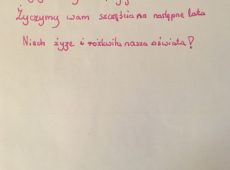 Życzymy wam szczęścia na następne lata
Niech żyje i rozkwita nasza oświata!